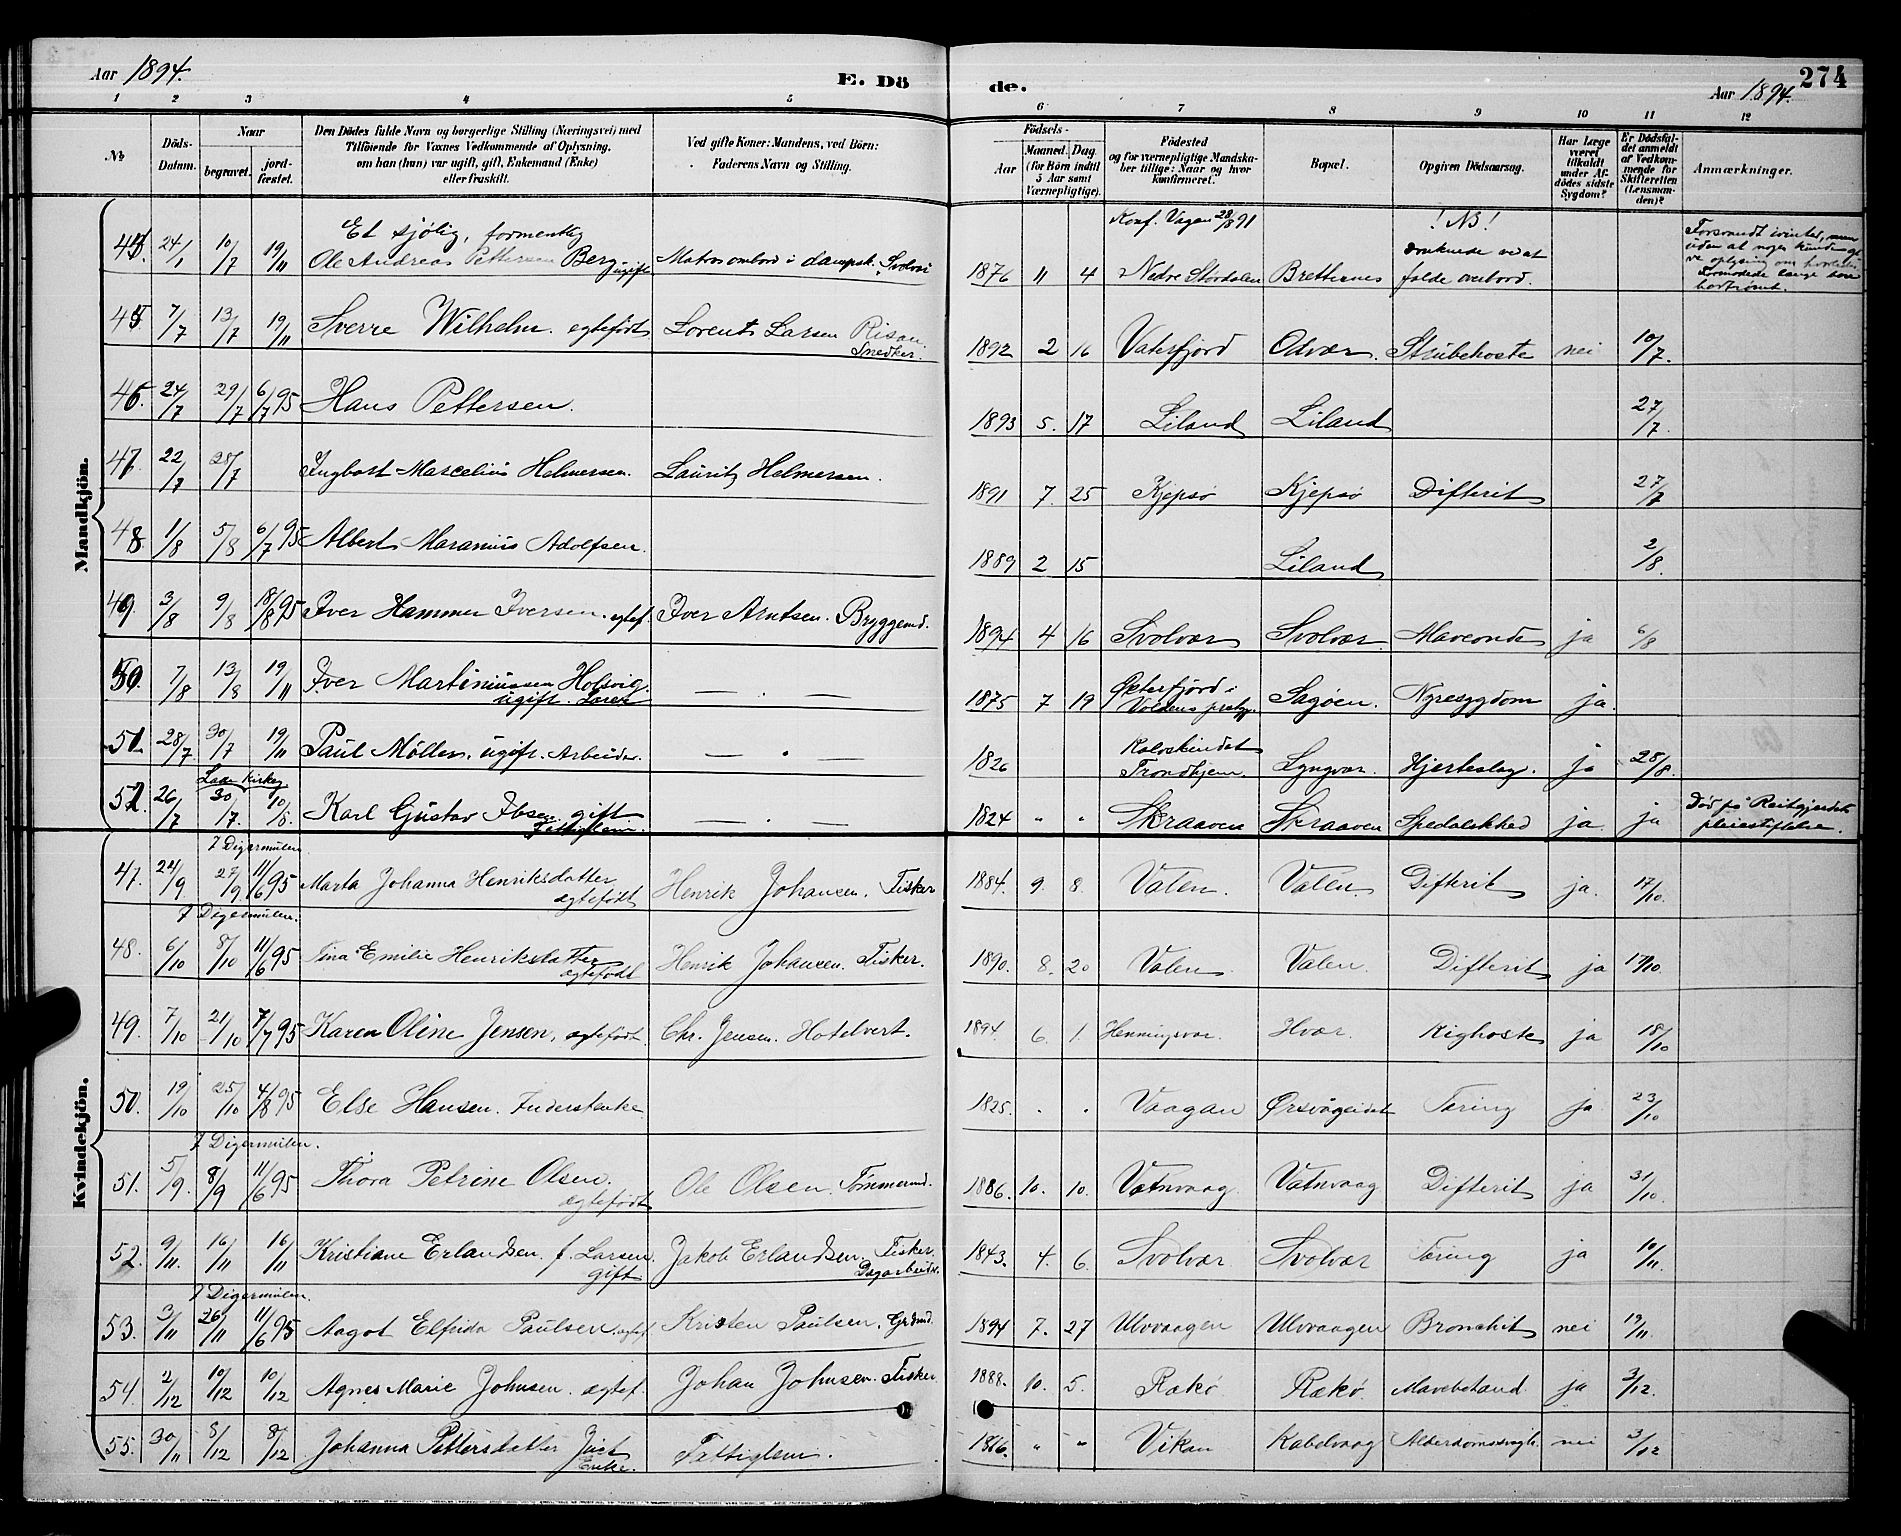 Aar 1894.
E. Dö
de.
Aar 1894.
274
1 2 3 4 5 6 7 8 9 10 11 12
№
Döds-Datum.
Naar
begravet.
jord-fæstet.
Den Dödes fulde Navn og borgerlige Stilling (Næringsvei) med
Tilföiende for Voxnes Vedkommende af Oplysning,
om han (hun) var ugift, gift, Enkemand (Enke)
eller fraskilt.
Ved gifte Koner: Mandens, ved Börn:
Faderens Navn og Stilling.
Födsels-
Aar
Maaned. Dag
(for Börn indtil
5 Aar samt
Værnepligtige).
Födested
og for værnepligtige Mandska-
ber tillige: Naar og hvor
Konfirmeret.
Bopæl.
Opgiven Dödsaarsag.
Har Læge
været
tilkaldt
under Af-
dödes sidste
Sygdom?
Er Dödsfal-
det anmeldt
af Vedkom-
mende for
Skifteretten
(Lensman-
den)?
Anmærkninger.
Mandkjön.
Et sjølig, formentlig Konf. Vagan 28/8 91 ! NB !
24/1 10/7 19/11 Ole Andreas Pettersen Berg ugift Matros ombord i dampsk. Svolvær 1876 11 4 Nedre Stordalen Bretternes druknede ved at falde overbord.
45 7/7 13/7 19/11 Sverre Wilhelm. egtefødt Lorents Larsen Risan Snedker. 1892 2 16 Vaterfjord Odvær. Strubehoste nei 10/7.
46. 24/7 29/7 6/7 95 Hans Pettersen. 1893 5. 17 Liland Liland 27/7.
47. 22/7 28/7 Ingbart Marcelius Helmersen. Lauritz Helmersen. 1891 7. 25 Kjepsø Kjepsø Difterit 27/7
48 1/8 5/8 6/7 95 Albert Maranius Adolfsen. 1889 2 15 Liland 2/8.
49. 3/8 9/8 18/8 95 Iver Hammer Iversen. egtef. Iver Arntsen. Bryggemd. 1894 4 16 Svolvær Svolvær Maveonde ja 6/8
50. 7/8 13/8 19/11 Iver Martiniussen Holsvig. ugift. — . — 1875 7 19 Østerfjord i Voldens prstgj. Sagøen. Nyresygdom ja.
51 28/7 30/7 19/11 Paul Møller. ugift. Arbeider. — . — 1826 Kalvskindet Trondhjem. Lyngvær. Hjerteslag. ja 28/8.
Lade Kirkeg
52. 26/7 30/7. 10/8. Karl Gustav Ibsen gift Fattiglem. — . — 1824 " " Skraaven Skraaven Spedalskhed ja. ja Død på Reitgjerdets pleiestiftelse.
Kvindekjön.
I Digermulen
47. 24/9 27/9. 11/6 95 Marta Johanna Henriksdatter ægtefødt Henrik Johansen. Fisker 1884. 9. 8. Valen. Valen. Difterit ja. 17/10.
I Digermulen.
48. 6/10 8/10 11/6 95 Tina Emilie Henriksdatter ægtefødt Henrik Johansen. Fisker. 1890. 8. 20 Valen. Valen. Difterit ja 17/10.
49. 7/10 21/10 7/7 95 Karen Oline Jensen, ægtefødt. Chr. Jensen. Hotelvert. 1894. 6. 1. Henningsvær. Hvær. Kighoste ja 18/10
50. 19/10 25/10 4/8 95 Else Hansen. Inderstenke 1825. . . Vaagan Ørsvågeidet Tæring ja. 23/10
I Digermulen.
51. 5/9. 8/9 11/6 95 Thora Petrine Olsen. ægtefødt Ole Olsen. Tømmermd. 1886. 10. 10. Vatnvaag Vatnvaag Difterit ja 31/10.
52. 9/11. 16/11 16/11 Kristiane Erlandsen. f. Larsen gift Jakob Erlandsen. Fisker. Dagarbeider. 1843. 4. 6. Svolvær Svolvær Tæring ja 10/11.
I Digermulen.
53. 3/11 26/11 11/6 95 Aagot Elfrida Paulsen. egtef. Kristen Paulsen. Grdmd. 1894 7. 27 Ulvvaagen Ulvvaagen Bronchit nei 19/11.
54. 2/12 10/12 10/12 Agnes Marie Johnsen. ægtef. Johan Johnsen. Fisker 1888. 10. 5. Rækø Rækø. Mavebetænd. ja 3/12.
55. 30/11 8/12 8/12 Johanna Pettersdatter Just Enke. Fattiglem. 1816. " " Vikan Kabelvaag Alderdomssvagh. nei 3/12